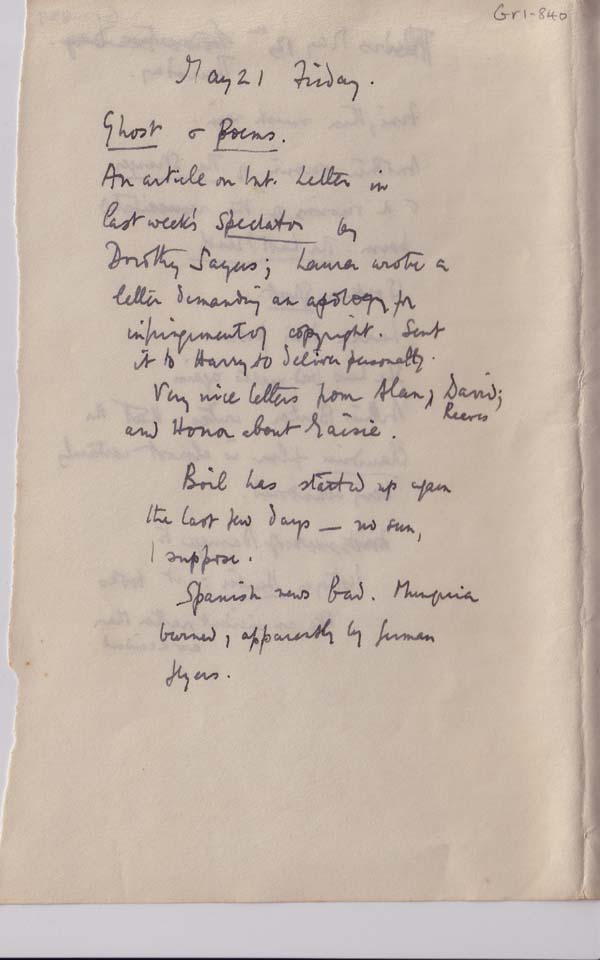 Gr1-840
May 21 Friday.
Ghost & Poems.
An article on Int. Letter in
last week's Spectator by
Dorothy Sayers; Laura wrote a
letter demanding an apology for
infringement of copyright. Sent
it to Harry to deliver personally.
Very nice letters from Alan, David;
Reeves
and Honor about Maisie.
Boil has started up again
the last few days — no sun,
I suppose.
Spanish news bad. Munguia
burned, apparently by German
flyers.